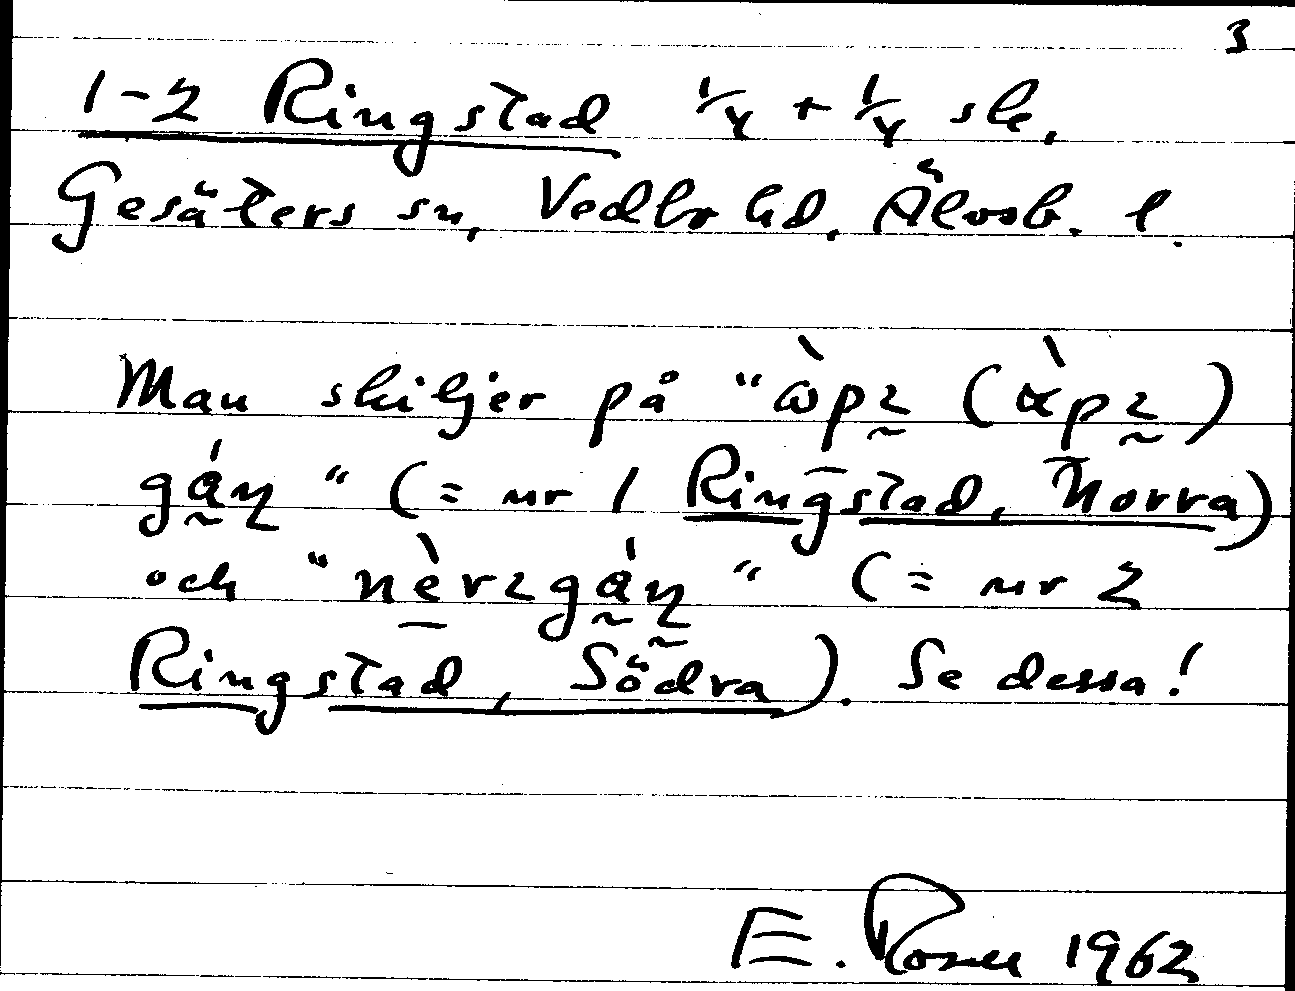 3
1-2 Ringstad 1/4 + 1/4 sk.
Gesäters sn, Vedbo hd, Älvsb. l.
Man skiljer på "
(= nr 1 Ringstad, Norra)
och " " (= nr 2
Ringstad, Södra). Se dessa!
E. Rosell 1962